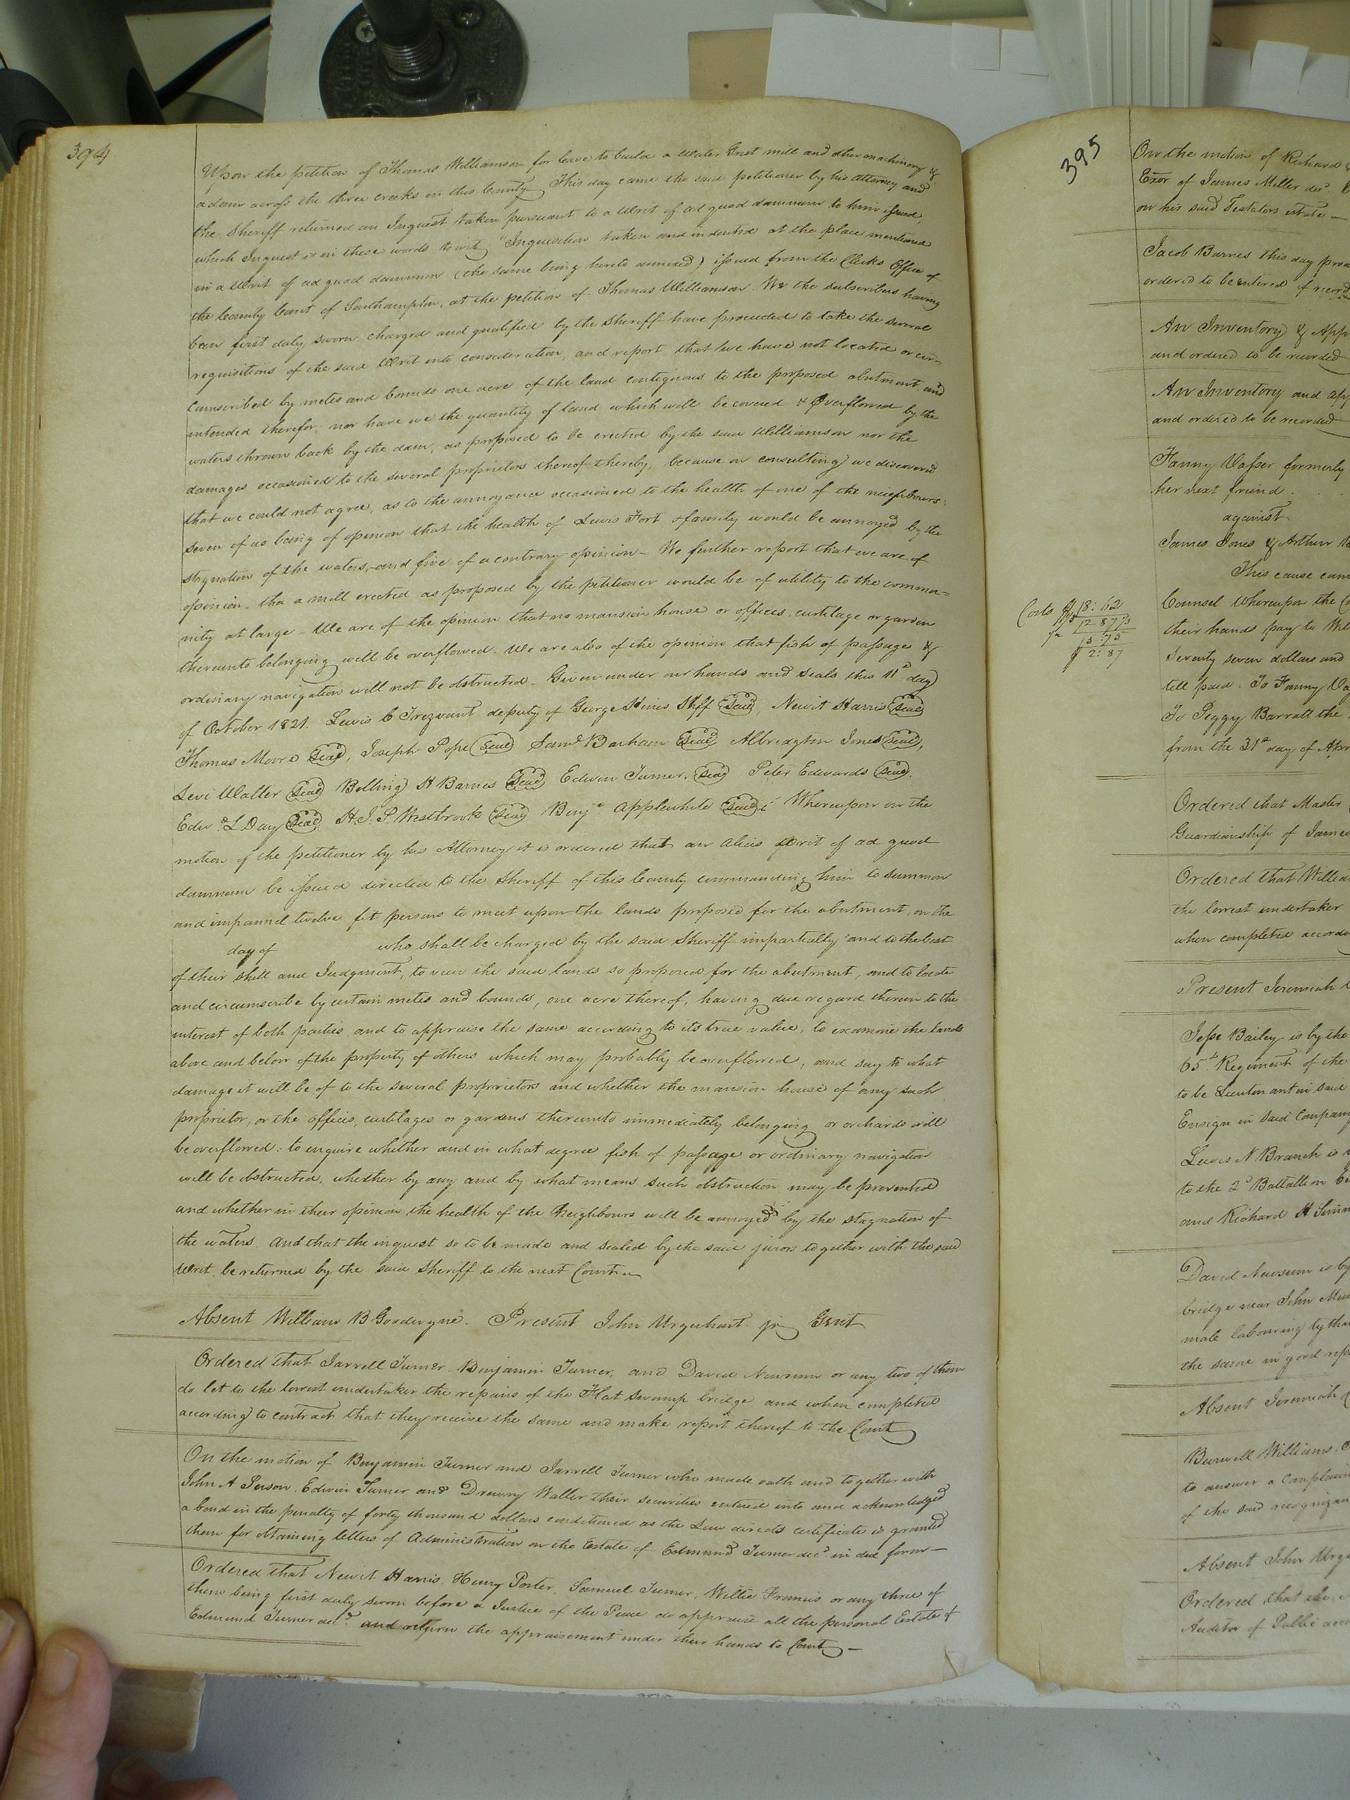 394
Upon the petition of Thomas Williamson for leave to build a Water Grist mill and other machinery &
a dam across the three creeks in this County This day came the said petitioner by his Attorney and
the Sheriff returned an Inquest taken pursuant to a Writ of ad quod damnum to him issued
which Inquest is in these words to wit, "Inquisition taken and indented at the place mentioned
in a Writ of ad quod damnum (the same being hereto annexed) issued from the Clerks Office of
the County Court of Southampton, at the petition of Thomas Williamson We the subscribers having
been first duly sworn charged and qualified by the Sheriff have proceeded to take the several
requisitions of the said Writ into consideration, and report that we have not located or cir-
cumscribed by metes and bounds one acre of the land contiguous to the proposed abutment and
intended therefor, nor have we the quantity of land which will be covered & Overflowed by the
waters thrown back by the dam, as proposed to be erected by the said Williamson nor the
damages occasioned to the several proprietors thereof thereby, because on consulting we discovered
that we could not agree, as to the annoyance occasioned to the health of one of the neighbours:
seven of us being of opinion that the health of Lewis Fort & family would be annoyed by the
stagnation of the waters, and five of a contrary opinion - We further report that we are of
opinion, tha a mill erected as proposed by the petitioner would be of utility to the commu-
nity at large - We are of the opinion that no mansion house or offices, curtilage or garden
thereunto belonging will be overflowed. We are also of the opinion that fish of passage &
ordinary navigation will not be obstructed - Given under our hands and seals this 11th day
of October 1821. Lewis C Trezvant deputy of George Hines Shff Seal, Newit Harris Seal
Thomas Moore Seal, Joseph Pope Seal Saml Barham Seal, Albridgton Jones Seal,
Levi Waller Seal Bolling H Barnes Seal Edwin Turner, Seal Peter Edwards Seal,
Edwd L Day Seal H. J. P. Westbrook Seal Benja Applewhite Seal" Whereupon on the
motion of the petitioner by his Attorney it is ordered that an alias Writ of ad quod
damnum be issued directed to the Sheriff of this County commanding him to summon
and impannel twelve fit persons to meet upon the lands proposed for the abutment, on the
day of who shall be charged by the said Sheriff impartially and to the best
of their skill and Judgment, to view the said lands so proposed for the abutment, and to locate
and circumscribe by certain metes and bounds, one acre thereof, having due regard therein to the
interest of both parties and to appraise the same according to its true value, to examine the lands
above and below of the property of others which may probably be overflowed, and say to what
damage it will be of to the several proprietors and whether the mansion house of any such
proprietor, or the offices, curtilages or gardens thereunto immediately belonging or orchards will
be overflowed: to enquire whether and in what degree fish of passage or ordinary navigation
will be obstructed, whether by any and by what means such obstruction may be prevented
and whether in their opinion the health of the Neighbours will be annoyed by the stagnation of
the waters. And that the inquest so to be made and sealed by the said jurors together with the said
Writ be returned by the said Sheriff to the next Court
Absent William B Goodwyne. Present John Urquhart jr Gent
Ordered that Jarrell Turner Benjamin Turner, and David Newsum or any two of them
do let to the lowest undertaker the repairs of the Flat Swamp bridge and when completed
according to contract that they receive the same and make report thereof to the Court
On the motion of Benjamin Turner and Jarrell Turner who made oath and together with
John A Person, Edwin Turner and Drewry Waller their securities entered into and acknowledged
a bond in the penalty of forty thousand dollars conditioned as the Law directs certificate is granted
them for obtaining letters of Administration on the Estate of Edmund Turner decd in due form -
Ordered that Newit Harris, Henry Porter, Samuel Turner, Willie Francis or any three of
them being first duly sworn before a Justice of the Peace do appraise all the personal Estate of
Edmund Turner decd and return the appraisement under their hands to Court -
395
On the motion of Richard
Exor of James Miller decd
on his said Testators estate -
Jacob Barnes this day
ordered to be entered of record
An Inventory &
and ordered to be recorded
An Inventory and
and ordered to be recorded
Fanny Vasser formerly
her next friend
against
James Jones & Arthur
This cause came
Costs 18:62
12 87
15:75
2:87
Counsel Whereupon the
their hands pay to
Seventy seven dollars and
till paid. To Fanny
To Peggy Barratt the
from the 31st day of
Ordered that Master
Guardianship of James
Ordered that
the lowest undertaker
when completed
Present Jeremiah
Jesse Bailey is by the
65th Regiment of the
to be Lieutenant in said
Ensign in said Company
Lewis N Branch is
to the 2d Battalion
and Richard H
David Newsum is by
bridge near John
male labouring
the same in good
Absent Jeremiah
Burwell Williams
to answer a complaint
of the said
Absent John
Ordered that the
Auditor of Public